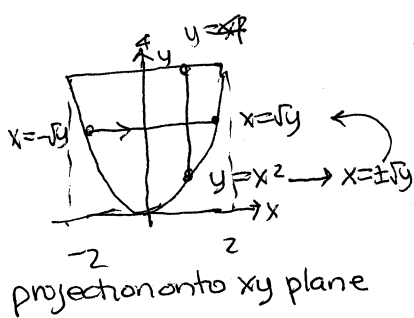 y=4
4
y
x=-√y
x=√y
y=x² → x=±√y
x
-2 2
projection onto xy plane